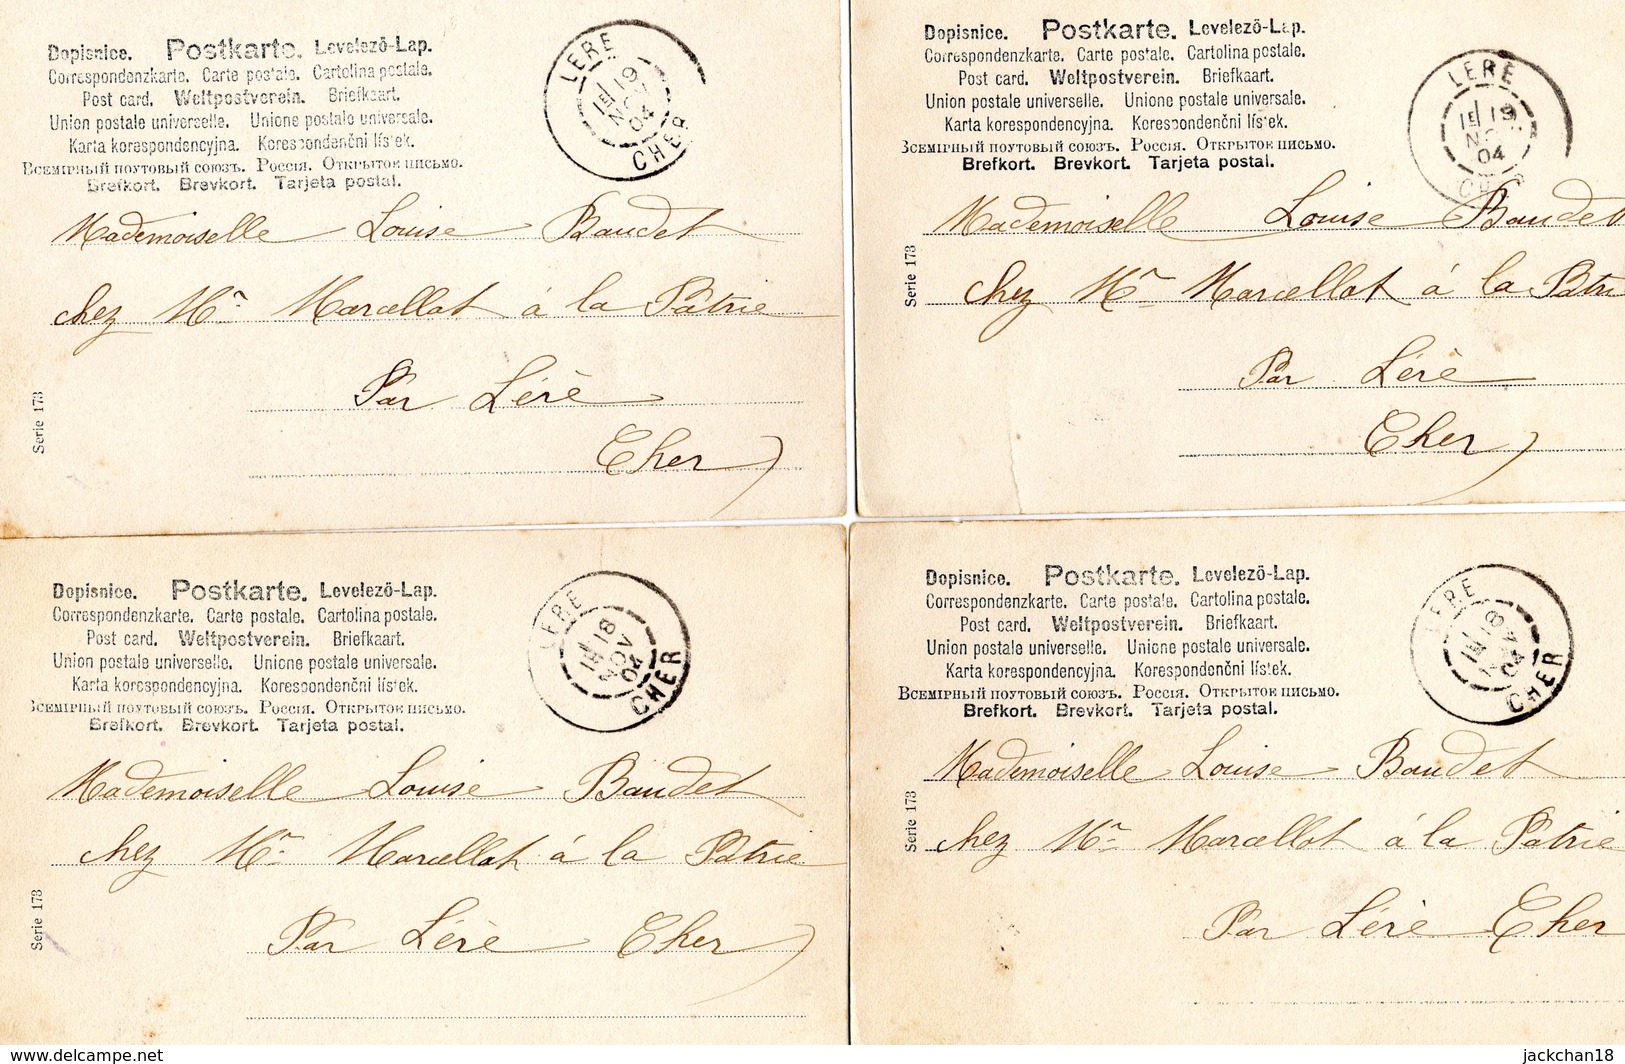 Dopisnice. Postkarte. Levelező-Lap.
Correspondenzkarte. Carte postale. Cartolina postale.
Post card. Weltpostverein. Briefkaart.
Union postale universelle. Unione postale universale.
Karta korespondencyjna. Korespondenční lístek.
Всемірный поутовый союзъ. Россія. Открытое письмо.
Brefkort. Brevkort. Tarjeta postal.
LERE
1E 19
NOV
04
CHER
Mademoiselle Louise Baudet
chez Mr Marcellot à la Pâtrie
Par Léré
Cher
Serie 173
Dopisnice. Postkarte. Levelező-Lap.
Correspondenzkarte. Carte postale. Cartolina postale.
Post card. Weltpostverein. Briefkaart.
Union postale universelle. Unione postale universale.
Karta korespondencyjna. Korespondenční lístek.
Всемірный поутовый союзъ. Россія. Открытое письмо.
Brefkort. Brevkort. Tarjeta postal.
LERE
1E 19
NO
04
CHE
Mademoiselle Louise Baudet
chez Mr Marcellot à la Pâtri
Par Léré
Cher
Serie 173
Dopisnice. Postkarte. Levelező-Lap.
Correspondenzkarte. Carte postale. Cartolina postale.
Post card. Weltpostverein. Briefkaart.
Union postale universelle. Unione postale universale.
Karta korespondencyjna. Korespondenční lístek.
Всемірный поутовый союзъ. Россія. Открытое письмо.
Brefkort. Brevkort. Tarjeta postal.
LERE
18
NOV
04
CHER
Mademoiselle Louise Baudet
chez Mr Marcellot à la Pâtrie
Par Léré Cher
Serie 173
Dopisnice. Postkarte. Levelező-Lap.
Correspondenzkarte. Carte postale. Cartolina postale.
Post card. Weltpostverein. Briefkaart.
Union postale universelle. Unione postale universale.
Karta korespondencyjna. Korespondenční lístek.
Всемірный поутовый союзъ. Россія. Открытое письмо.
Brefkort. Brevkort. Tarjeta postal.
LERE
18
04
CHER
Mademoiselle Louise Baudet
chez Mr Marcellot à la Pâtrie
Par Léré Cher
Serie 173
www.delcampe.net
jackchan18